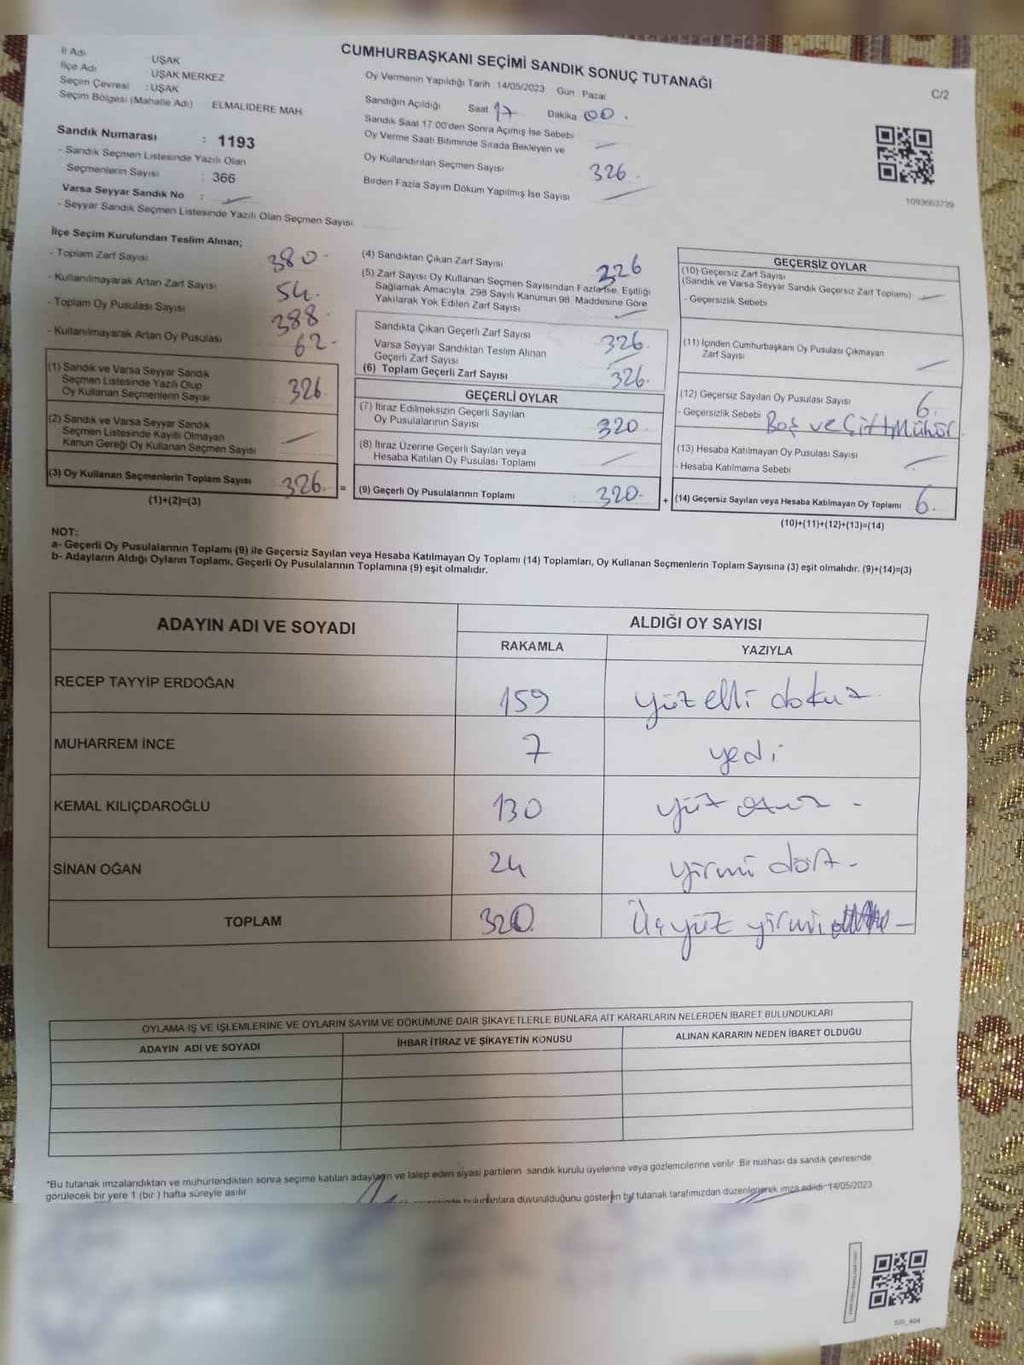 CUMHURBAŞKANI SEÇİMİ SANDIK SONUÇ TUTANAĞI
C/2
İl Adı : UŞAK
İlçe Adı : UŞAK MERKEZ
Seçim Çevresi : UŞAK
Seçim Bölgesi (Mahalle Adı) ELMALIDERE MAH
Sandık Numarası : 1193
- Sandık Seçmen Listesinde Yazılı Olan
Seçmenlerin Sayısı : 366
Varsa Seyyar Sandık No :
- Seyyar Sandık Seçmen Listesinde Yazılı Olan Seçmen Sayısı
Oy Vermenin Yapıldığı Tarih 14/05/2023 Gün Pazar
Sandığın Açıldığı Saat 17 Dakika 00.
Sandık Saat 17.00'den Sonra Açımış İse Sebebi
Oy Verme Saati Bitiminde Sırada Bekleyen ve
Oy Kullandırılan Seçmen Sayısı 326
Birden Fazla Sayım Döküm Yapılmış İse Sayısı
1093653739
İlçe Seçim Kurulundan Teslim Alınan;
- Toplam Zarf Sayısı 380
- Kullanılmayarak Artan Zarf Sayısı 54.
- Toplam Oy Pusulası Sayısı 388
- Kullanılmayarak Artan Oy Pusulası 62
(1) Sandık ve Varsa Seyyar Sandık
Seçmen Listesinde Yazılı Olup
Oy Kullanan Seçmenlerin Sayısı 326
(2) Sandık ve Varsa Seyyar Sandık
Seçmen Listesinde Kayıtlı Olmayan
Kanun Gereği Oy Kullanan Seçmen Sayısı
(3) Oy Kullanan Seçmenlerin Toplam Sayısı 326
(1)+(2)=(3)
(4) Sandıktan Çıkan Zarf Sayısı 326
(5) Zarf Sayısı Oy Kullanan Seçmen Sayısından Fazla İse, Eşitliği
Sağlamak Amacıyla, 298 Sayılı Kanunun 98. Maddesine Göre
Yakılarak Yok Edilen Zarf Sayısı
Sandıkta Çıkan Geçerli Zarf Sayısı 326
Varsa Seyyar Sandıktan Teslim Alınan
Geçerli Zarf Sayısı
(6) Toplam Geçerli Zarf Sayısı 326.
GEÇERLİ OYLAR
(7) İtiraz Edilmeksizin Geçerli Sayılan
Oy Pusulalarının Sayısı 320
(8) İtiraz Üzerine Geçerli Sayılan veya
Hesaba Katılan Oy Pusulası Toplamı
= (9) Geçerli Oy Pusulalarının Toplamı : 320
GEÇERSİZ OYLAR
(10) Geçersiz Zarf Sayısı
(Sandık ve Varsa Seyyar Sandık Geçersiz Zarf Toplamı)
- Geçersizlik Sebebi
(11) İçinden Cumhurbaşkanı Oy Pusulası Çıkmayan
Zarf Sayısı
(12) Geçersiz Sayılan Oy Pusulası Sayısı 6.
- Geçersizlik Sebebi Boş ve Çift Mühür
(13) Hesaba Katılmayan Oy Pusulası Sayısı
- Hesaba Katılmama Sebebi
+ (14) Geçersiz Sayılan veya Hesaba Katılmayan Oy Toplamı 6.
(10)+(11)+(12)+(13)=(14)
NOT:
a- Geçerli Oy Pusulalarının Toplamı (9) ile Geçersiz Sayılan veya Hesaba Katılmayan Oy Toplamı (14) Toplamları, Oy Kullanan Seçmenlerin Toplam Sayısına (3) eşit olmalıdır. (9)+(14)=(3)
b- Adayların Aldığı Oyların Toplamı, Geçerli Oy Pusulalarının Toplamına (9) eşit olmalıdır.
ADAYIN ADI VE SOYADI
ALDIĞI OY SAYISI
RAKAMLA YAZIYLA
RECEP TAYYİP ERDOĞAN 159 yüz elli dokuz
MUHARREM İNCE 7 yedi
KEMAL KILIÇDAROĞLU 130 yüz otuz -
SİNAN OĞAN 24 yirmi dört -
TOPLAM 320 Üçyüz yirmi
OYLAMA İŞ VE İŞLEMLERİNE VE OYLARIN SAYIM VE DÖKÜMÜNE DAİR ŞİKAYETLERLE BUNLARA AİT KARARLARIN NELERDEN İBARET BULUNDUKLARI
ADAYIN ADI VE SOYADI İHBAR İTİRAZ VE ŞİKAYETİN KONUSU ALINAN KARARIN NEDEN İBARET OLDUĞU
*Bu tutanak imzalandıktan ve mühürlendikten sonra seçime katılan adayların ve talep eden siyasi partilerin sandık kurulu üyelerine veya gözlemcilerine verilir. Bir nüshası da sandık çevresinde
görülecek bir yere 1 (bir) hafta süreyle asılır.
bulunanlara duyurulduğunu gösteren bu tutanak tarafımızdan düzenlenerek imza edildi. 14/05/2023